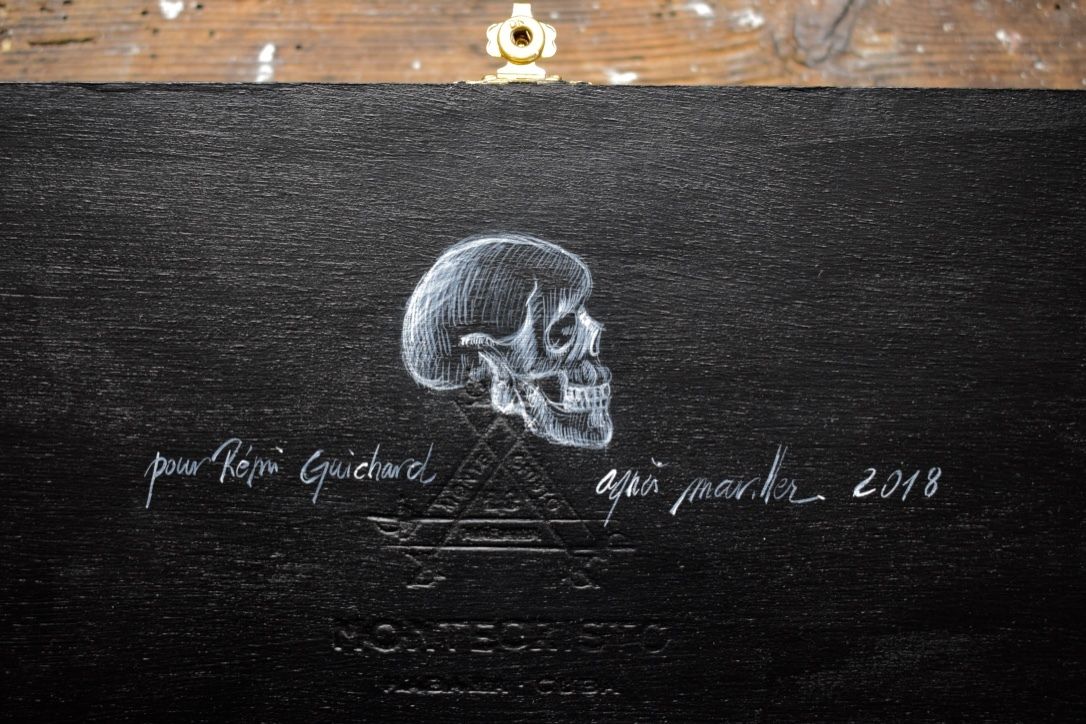 pour Rémi Guichard
agnès mariller 2018
MONTE CRISTO
MONTECRISTO
HABANA · CUBA